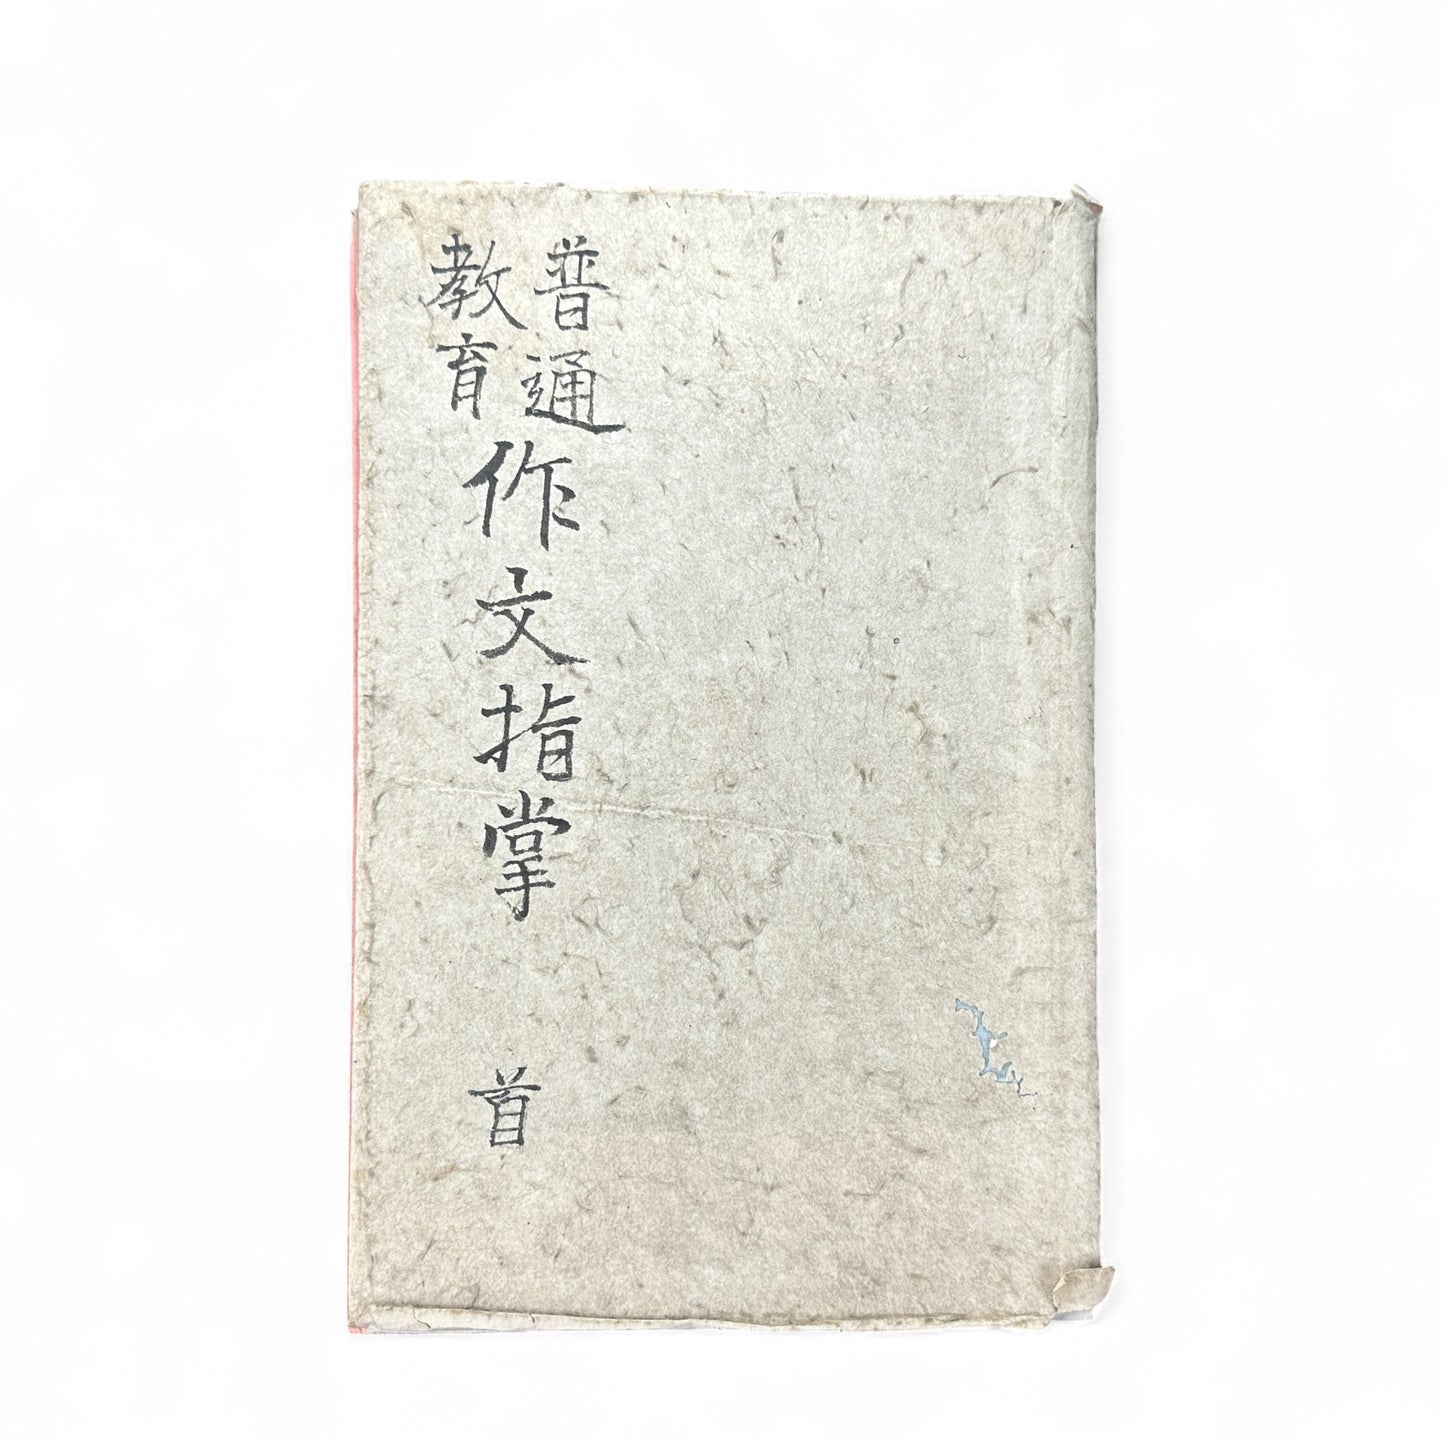 普通
教育
作文指掌
首